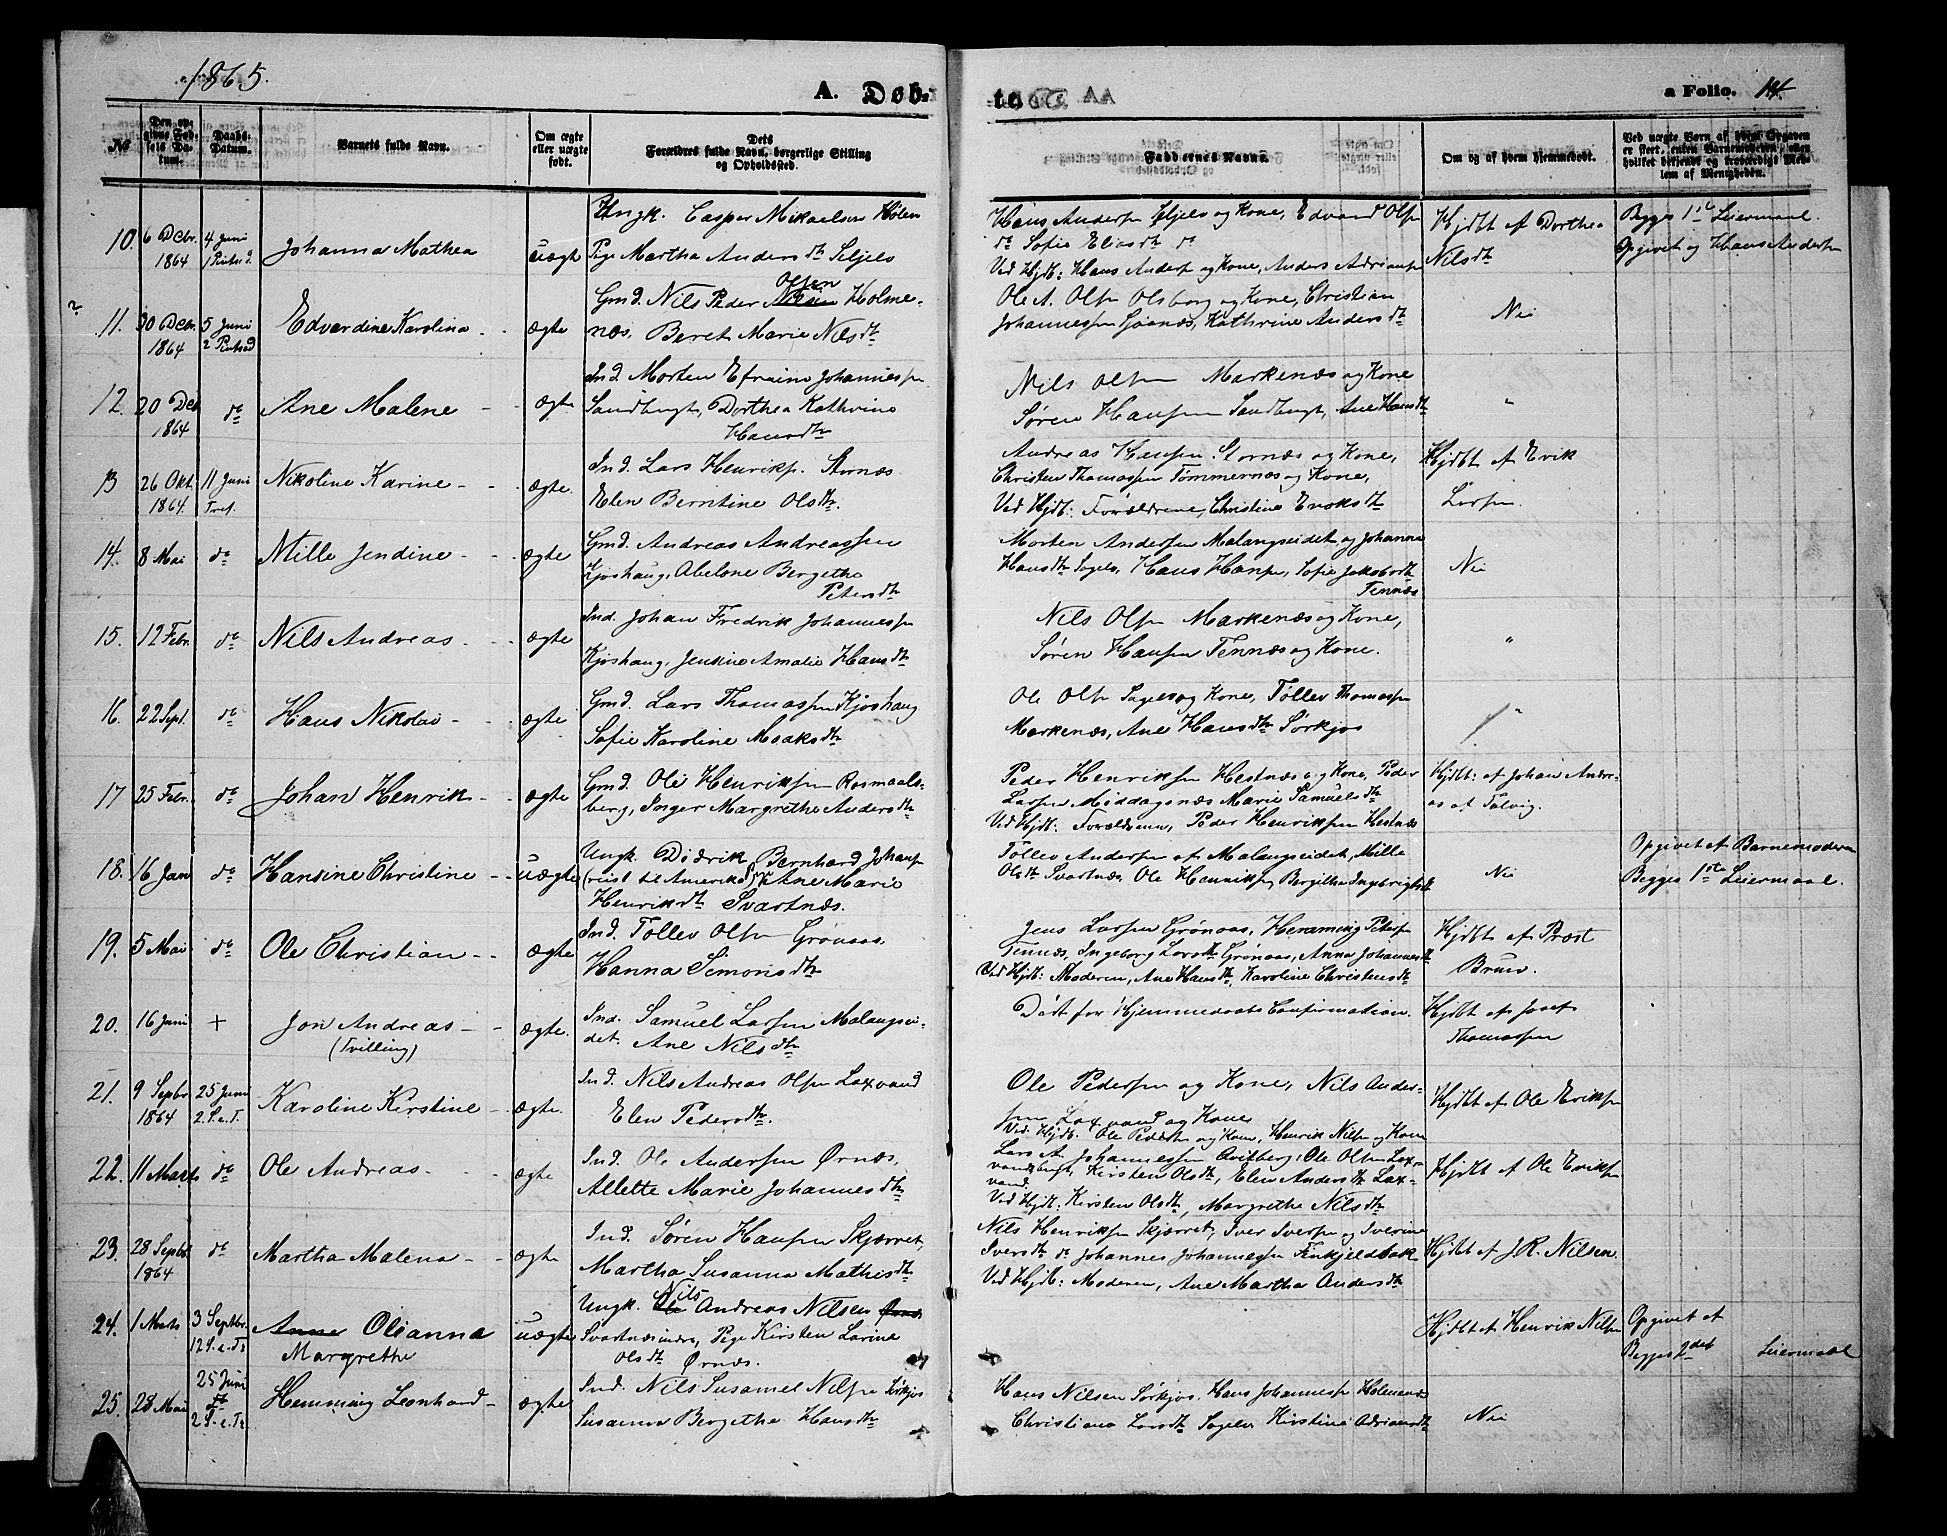 1865.
A. Døb-
te
a Folio. 14.
No
Den opgivne Fødsels Datum.
Daabs-Datum.
Barnets fulde Navn.
Om ægte eller uægte født.
Dets Forældres fulde Navn, borgerlige Stilling og Opholdssted.
Faddernes Navne.
Om og af hvem hjemmedøbt.
Ved uægte Børn af hvem Opgaven er skeet, enten Barnemoderen, eller hvilket bekjendt og troværdigt Medlem af Menigheden.
10. 6 Decbr. 1864 4 Juni 1 Pintsed. Johanna Mathea uægte
Ungk. Casper Mikaelsen Hølen
Pige Martha Andersdtr Seljelv
Hans Andersen Seljelv og Kone, Edvard Olsen
do Sofie Eliasdtr do
Ved Hjdb: Hans Anders. og Kone, Anders Adriansen
Hjdbt af Dorthea
Nilsdtr
Begges 1ste Leiermaal.
Opgivet og Hans Andersen
11. 30 Decbr. 1864 5 Juni 2 Pintsed Edvardine Karolina ægte
Gmd. Nils Peder Nilsen Olsen Holme-
næs, Beret Marie Nilsdtr
Ole A. Olsen Olsborg og Kone, Christian
Johannessen Sjåanæs, Kathrine Andersdtr
Nei
12. 20 Dec 1864 do Ane Malene ægte
Ind. Morten Efraim Johannessen
Sandbugt, Dorthea Kathrine
Hansdtr
Nils Olsen Markenæs og Kone
Søren Hansen Sandbugt, Ane Hansdtr
"
13 26 Okt. 1864 11 Juni Tref. Nikoline Karine ægte.
Ind. Lars Henriks. Stornæs
Elen Berntine Olsdtr.
Andreas Hansen Stornæs og Kone,
Christen Thomassen Tømmernæs og Kone,
Ved Hjdb: Forældrene, Christine Enoksdtr
Hjdbt af Erik
Larsen.
14. 8 Mai do Mille Jendine ægte
Gmd. Andreas Andreassen
Kjoshaug, Abelone Bergethe
Petersdtr
Morten Andersen Malangseidet og Johanna
Hansdtr Sagelv, Hans Hansen, Sofie Jakobsdtr
Tennæs
Nei
15. 12 Febr. do Nils Andreas ægte
Ind. Johan Fredrik Johannessen
Kjoshaug, Jensine Amalie Hansdtr
Nils Olsen Markenæs og Kone,
Søren Hansen Tennæs og Kone.
"
16. 22 Sept. do Hans Nikolai ægte
Gmd. Lars Thomassen Kjoshaug
Sofie Karoline Moaksdtr
Ole Olsen Sagelv og Kone, Tollev Thomassen
Markenæs, Ane Hansdtr Sørkjos
"
17 25 Febr. do Johan Henrik ægte
Gmd. Ole Henriksen Rosmaals-
berg, Inger Margrethe Andersdtr
Peder Henriksen Hestnæs og Kone, Peder
Larsen Middagsnæs Marie Samuelsdtr
Ved Hjdb: Forældrene, Peder Henriksen Hestnæs
Hjdbt: af Johan Andre-
as af Tølvig.
18. 16 Jan do Hansine Christine uægte
Ungk. Didrik Bernhard Johans.
(reist til Amerika) Ane Marie
Henriksdtr Svartnæs.
Tollev Andersen af Malangseidet, Mille
Olsdtr Svartnæs, Ole Henriksen, Bergitha Ingebrigtsdtr
Nei
Opgivet af Barnemoderen
Begges 1ste Leiermaal.
19. 5 Mai do Ole Christian ægte
Ind. Tollev Olsen Grønaas,
Hanna Simonsdtr
Jens Larsen Grønaas, Hemming Peters.
Tennæs, Ingeborg Larsdtr Grønaas, Anna Johannesdtr
Ved Hjdb: Moderen, Ane Hansdtr, Karoline Christensdtr
Hjdbt af Præst
Bruun.
20. 16 Juni + Jon Andreas (Tvilling) ægte.
Ind. Samuel Larsen Malangsei-
det. Ane Nilsdtr
Dødt før Hjemmedaabs Confirmation.
Hjdbt af Josef
Thomassen
21. 9 Septbr 1864 25 Juni 2. S. e. T. Karoline Kirstine ægte.
Ind. Nils Andreas Olsen Laxvand
Elen Pedersdtr.
Ole Pedersen og Kone, Nils Ander-
sen Laxvand og Kone
Ved Hjdb. Ole Peders. og Kone, Henrik Nils. og Kone
Hjdbt af Ole Eriksen
22. 11 Marts do Ole Andreas ægte
Ind. Ole Andersen Ørnæs,
Allette Marie Johannesdtr
Lars A. Johannessen Qvitberg, Ole Olsen Lax-
vandsbugt, Kirsten Olsdtr, Elen Andersdtr Lax-
vand
Ved Hjdb: Kirsten Olsdtr, Margrethe Nilsdtr
Hjdbt af Ole Eriksen
23. 28 Septbr 1864 do Martha Malena ægte
Ind. Søren Hansen Skjærret,
Martha Susanna Mathisdtr
Nils Henriksen Skjærret, Iver Iversen og Iverine
Iversdtr do Johannes Johannessen Finkjeldbak
Ved Hjdb: Moderen, Ane Martha Andersdtr
Hjdbt af J. R. Nilsen.
24. 1 Marts 3 Septbr. 12 S. e. Tr Anne Olianna Margrethe uægte
Ungk. Ole Nils Andreas Nilsen Ørnæs
Svartnæsindre, Pige Kirsten Larina
Olsdtr Ørnæs.
Hjdbt af Henrik Nilsen
Opgivet af
Begges 2det Leiermaal
25. 28 Mai 25 Juni 2 S. e. Tr Hemming Leonhard ægte
Ind. Nils Susamel Nilsen Sørkjos
Susanna Bergetha Hansdtr
Hans Nilsen Sørkjos, Hans Johannessen Holmenæs
Christiana Larsdtr Sagelv Kirstine Adriansdtr
Nei